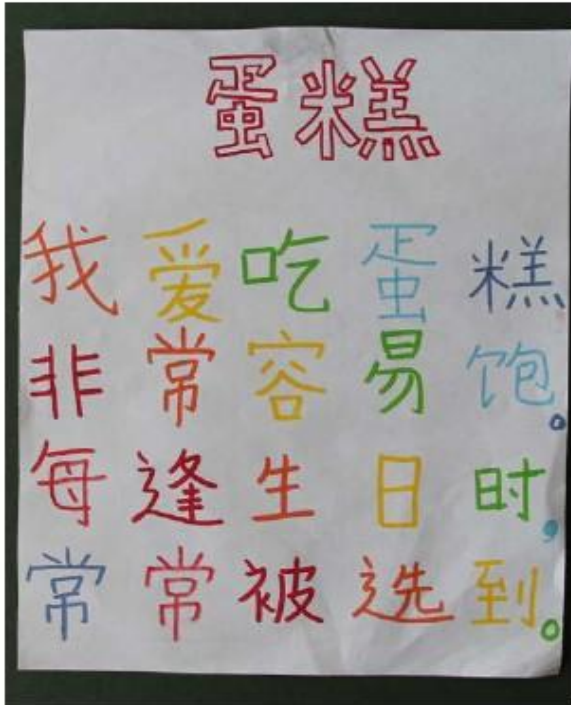 蛋糕
我爱吃蛋糕
非常容易饱。
每逢生日时，
常常被选到。